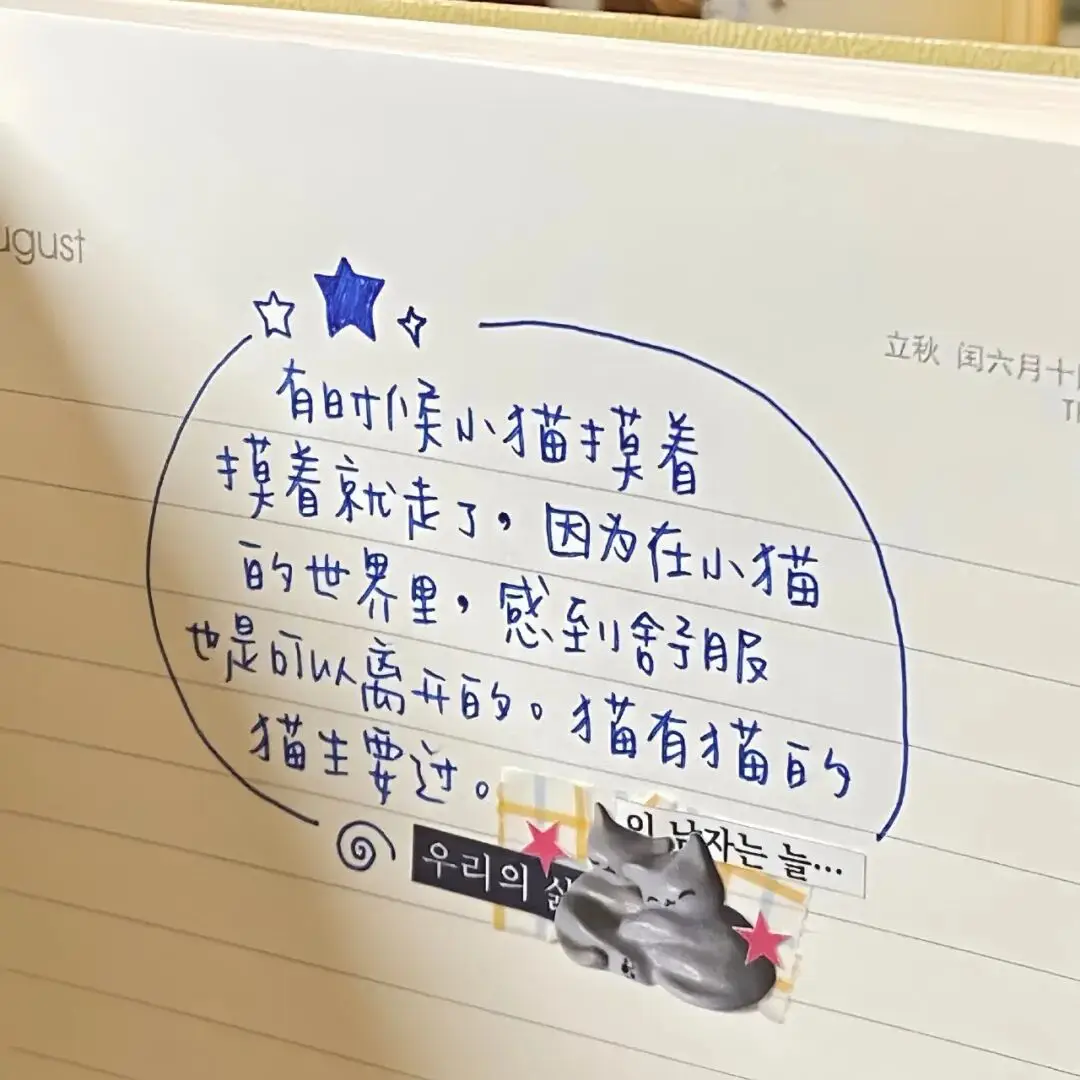 ugust
立秋 闰六月十
有时候小猫摸着
摸着就走了，因为在小猫
的世界里，感到舒服
也是可以离开的。猫有猫的
猫生要过。
우리의 삶
의 남자는 늘…